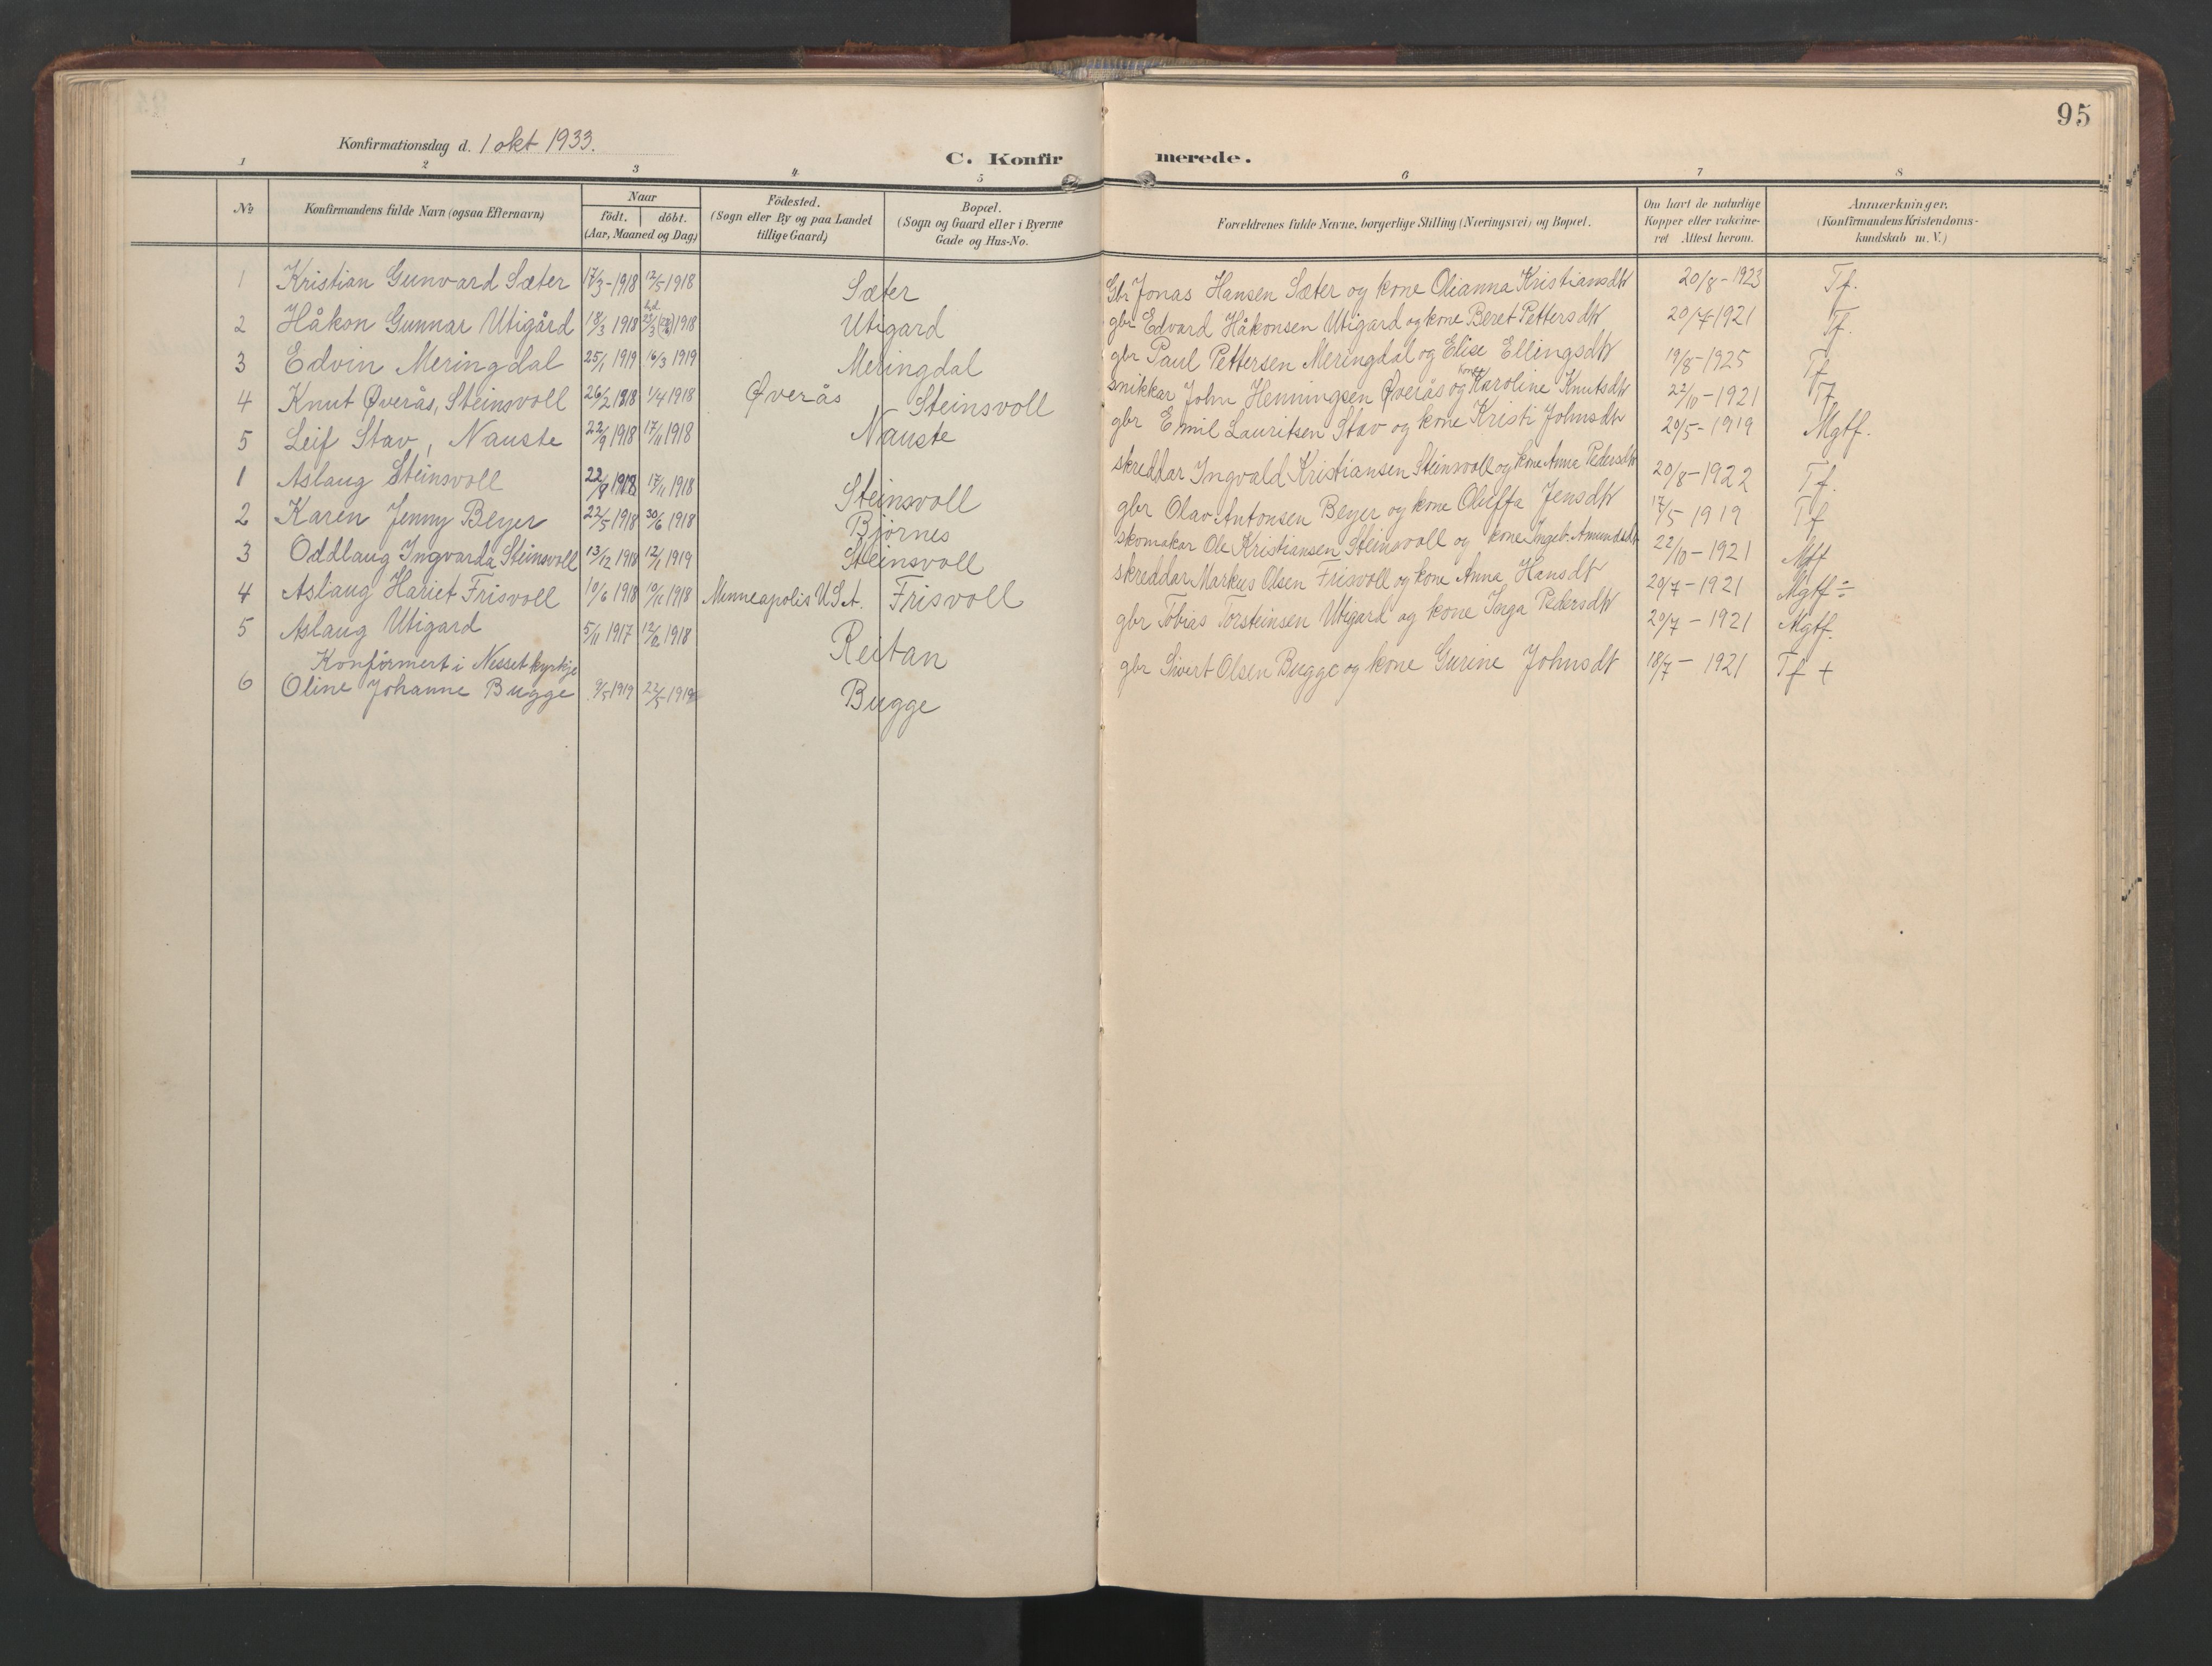 95
Konfirmationsdag d. 1 okt 1933.
C. Konfirmerede.
1 2 3 4 5 6 7 8
No
Konfirmandens fulde Navn (ogsaa Efternavn)
Naar
födt. döbt.
(Aar, Maaned og Dag)
Födested.
(Sogn eller By og paa Landet
tillige Gaard)
Bopæl.
(Sogn og Gaard eller i Byerne
Gade og Hus-No.
Forældrenes fulde Navne, borgerlige Stilling (Næringsvei) og Bopæl.
Om havt de naturlige
Kopper eller vakcine-
ret Attest herom.
Anmærkninger.
(Konfirmandens Kristendoms-
kundskab m. V.)
1 Kristian Gunvard Sæter 17/3-1918 12/5 1918 Sæter Gbr Jonas Hansen Sæter og kone Olianna Kristiansdtr 20/8-1923 Tf.
2 Håkon Gunnar Utigård 18/3 1918 1918 Utigard gbr Edvard Håkonsen Utigard og kone Beret Pettersdtr 20/7 1921 Tf.
3 Edvin Meringdal 25/1 1919 16/3 1919 Meringdal gbr Paul Pettersen Meringdal og Elise Ellingsdtr 19/8-1925 Tf
4 Knut Øverås, Steinsvoll 26/2 1918 1/4 1918 Øverås Steinsvoll snikkar John Henningsen Øverås og kone Karoline Knutsdtr 22/10-1921 Tf
5 Leif Stav, Nauste 22/9 1918 17/11 1918 Nauste gbr Emil Lauritsen Stav og kone Kristi Johnsdtr 20/5-1919 Mgtf.
1 Aslaug Steinsvoll 22/8 1918 17/11 1918 Steinsvoll skreddar Ingvald Kristiansen Steinsvoll og kone Anna Pedersdtr 20/8-1922 Tf.
2 Karen Jenny Beyer 22/5 1918 30/6 1918 Bjørnes gbr Olav Antonsen Beyer og kone Oluffa Jensdtr 17/5 1919 Tf
3 Oddlaug Ingvarda Steinsvoll 13/12 1918 12/1 1919 Steinsvoll skomakar Ole Kristiansen Steinsvoll og kone Ingeb. Amundsdtr 22/10-1921 Mtf
4 Aslaug Hariet Frisvoll 10/6 1918 10/11 1918 Minneapolis U.S.A. Frisvoll skreddar Markus Olsen Frisvoll og kone Anna Hansdtr 20/7-1921 Mgtf÷
5 Aslaug Utigard 5/11 1917 1918 Reitan gbr Tobias Torsteinsen Utigard og kone Inga Pedersdtr 20/7-1921 Mgtf.
Konfirmert i Nesset kyrkje
6 Oline Johanne Bugge 9/5 1919 22/5 1919 Bugge gbr Sivert Olsen Bugge og kone Gurine Johnsdtr 18/7-1921 Tf +